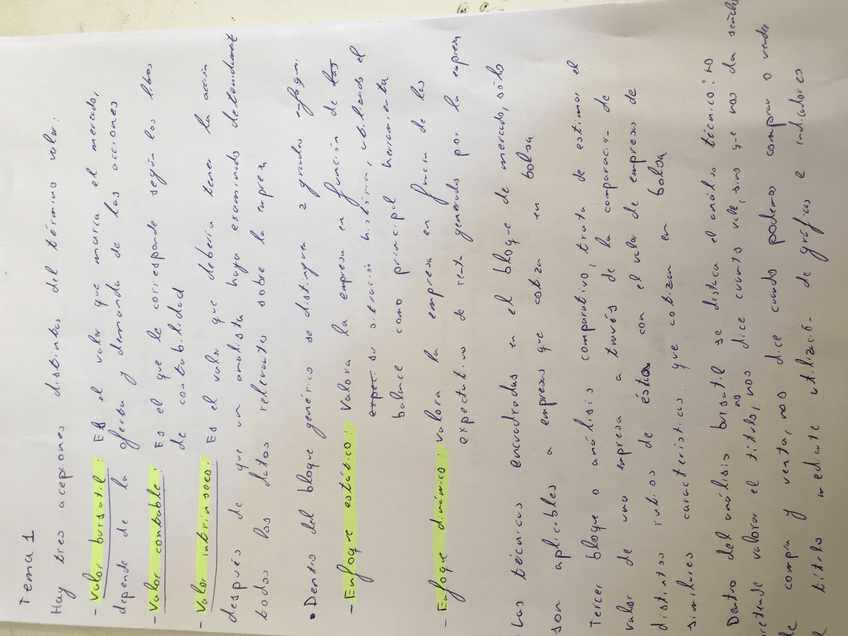 Tema 1
Hay tres acepciones distintas del término valor:
- Valor bursatil: Es el valor que marca el mercado,
depende de la oferta y demanda de las acciones
- Valor contable: Es el que le corresponde según los libros
de contabilidad
- Valor intrinseco: Es el valor que debería tener la acción
después de que un analista haya examinado detenidament
todos los datos relevantes sobre la empresa
• Dentro del bloque genérico se distinguen 2 grandes enfoques
- Enfoque estático: Valora la empresa en función de
su situación histórica, utilizando el
balance como principal herramienta
- Enfoque dinámico: valora la empresa en funcion de las
expectativas de renta generadas por la empresa
Las técnicas encuadradas en el bloque de mercado, sólo
son aplicables a empresas que cotizan en bolsa
Tercer bloque o análisis comparativo, trata de estimar el
valor de una empresa a través de la comparación de
distintos ratios de ésta con el valor de empresas de
similares características que cotizan en bolsa
Dentro del análisis bursatil se destaca el análisis técnico: no
pretende valorar el título, no nos dice cuanto vale, sino que nos da señales
de compra y venta, nos dice cuando podemos comprar o vender
el título mediante utilización de gráficas e indicadores